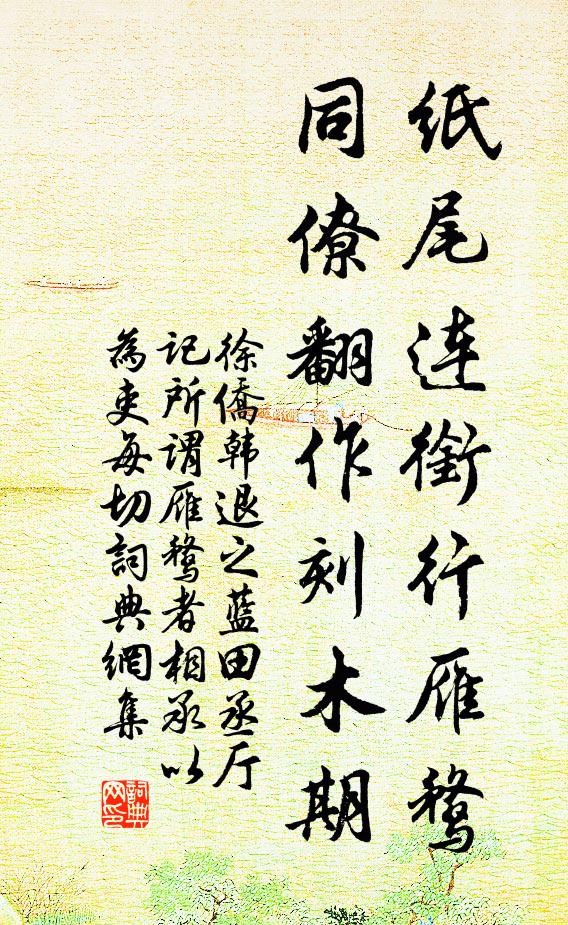 纸尾连衔行雁鹜
同僚翻作刻木期
徐侨韩退之蓝田丞厅
记所谓雁鹜者相承以
为吏每切词典网集
词典网印